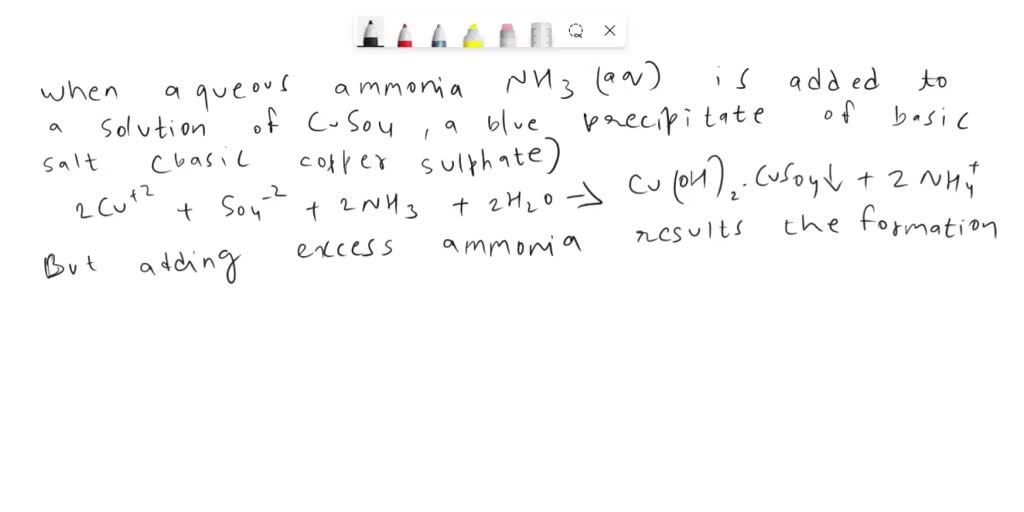 when aqueous ammonia NH3 (aq) is added to
a solution of CuSO4, a blue precipitate of basic
salt (basic copper sulphate)
2Cu+2 + SO4-2 + 2NH3 + 2H2O → Cu(OH)2.CuSO4↓ + 2NH4+
But adding excess ammonia results the formation